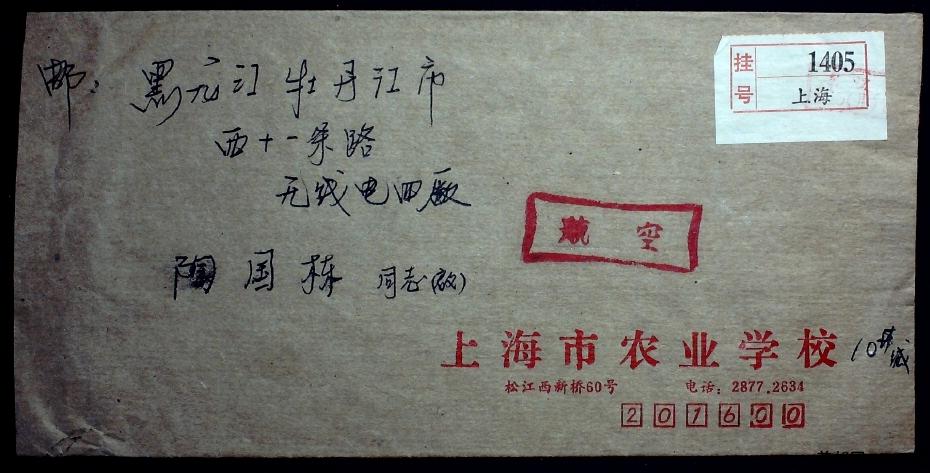 挂号 1405
上海
邮：黑龙江牡丹江市
西十一条路
无线电四厂
陶国栋 同志(啟)
航 空
上海市农业学校 10
松江西新桥60号 电话：2877.2634
201600